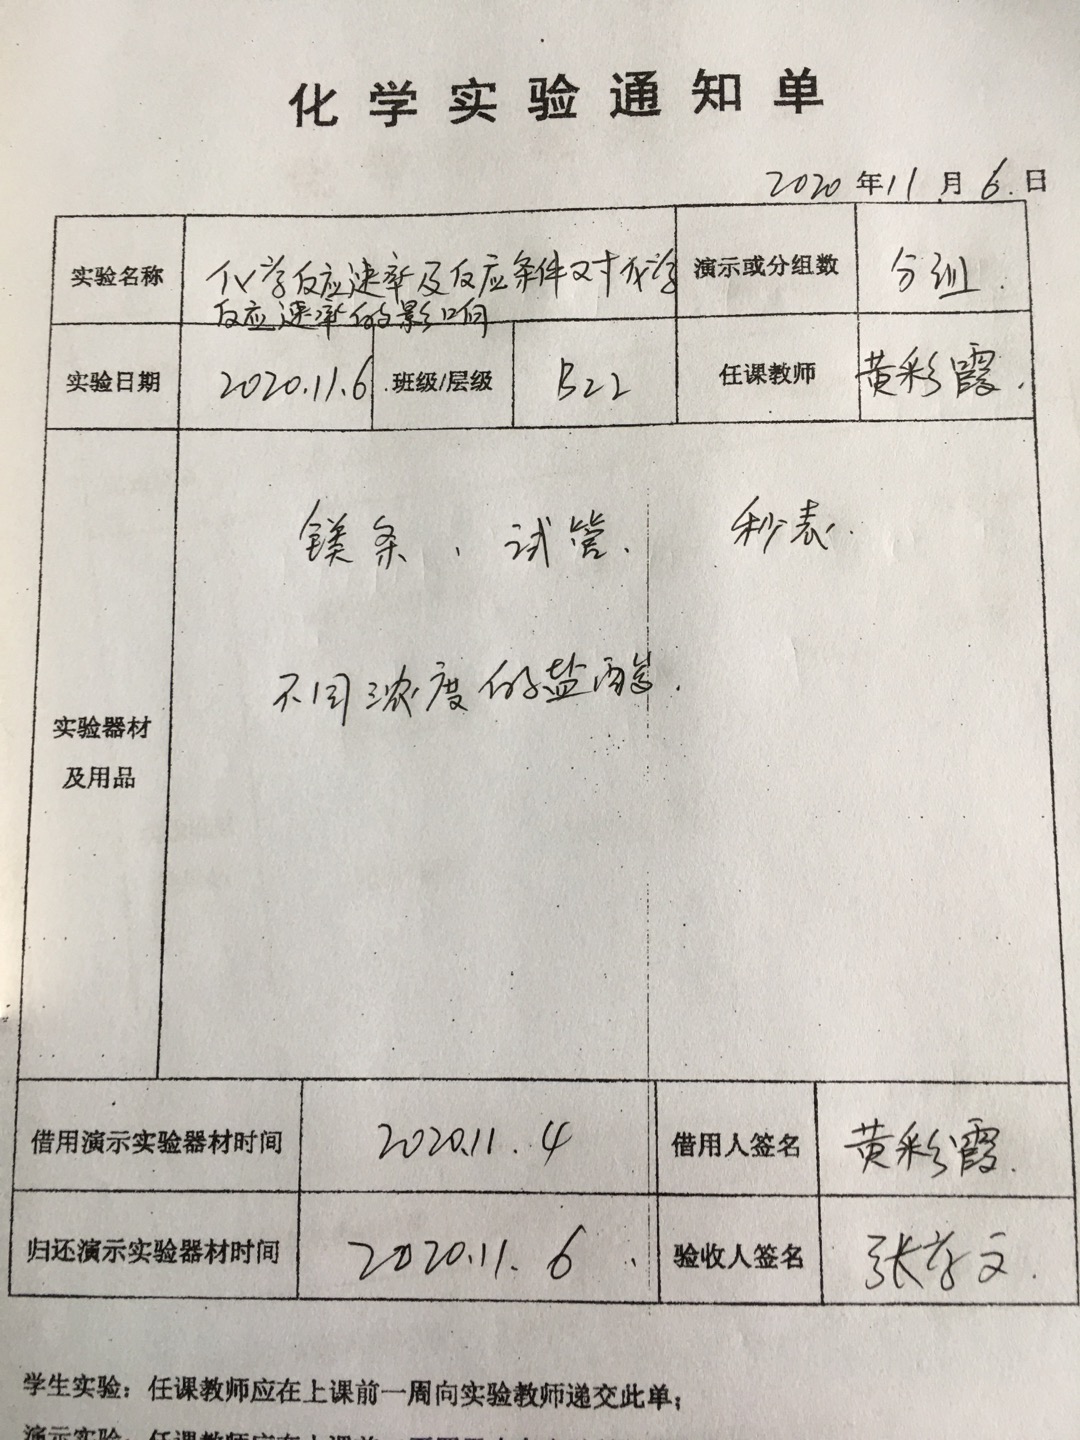 化学实验通知单
2020年11月6.日
实验名称 化学反应速率及反应条件对化学 演示或分组数 分组.
反应速率的影响
实验日期 2020.11.6. 班级/层级 B22 任课教师 黄彩霞.
镁条、试管、 秒表.
不同浓度的盐酸.
实验器材
及用品
借用演示实验器材时间 2020.11.4 借用人签名 黄彩霞.
归还演示实验器材时间 2020.11.6. 验收人签名 张文.
学生实验：任课教师应在上课前一周向实验教师递交此单；
演示实验：任课教师应在上课前一